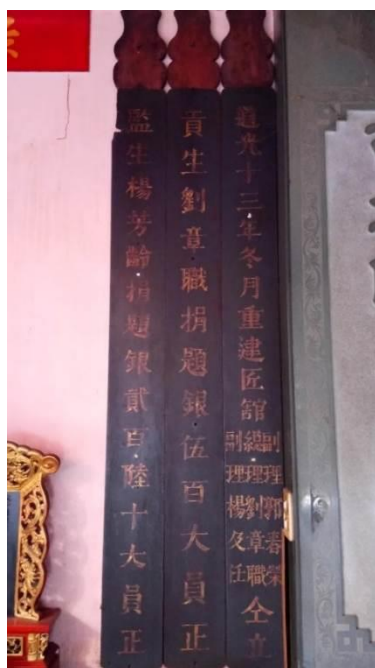 道光十三年冬月重建匠舘
副理郭春榮
總理劉章職
副理楊及任
仝立
貢生劉章職捐題銀伍百大員正
監生楊芳齡捐題銀貳百陸十大員正